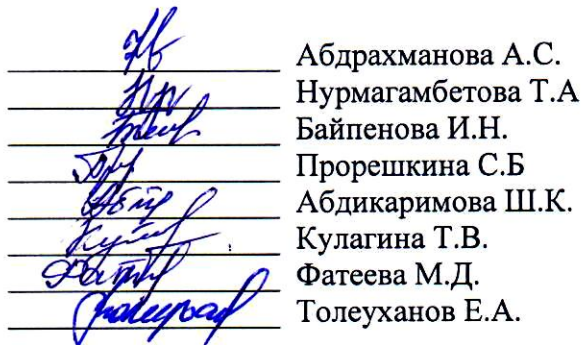 Абдрахманова А.С.
Нурмагамбетова Т.А
Байпенова И.Н.
Прорешкина С.Б
Абдикаримова Ш.К.
Кулагина Т.В.
Фатеева М.Д.
Толеуханов Е.А.